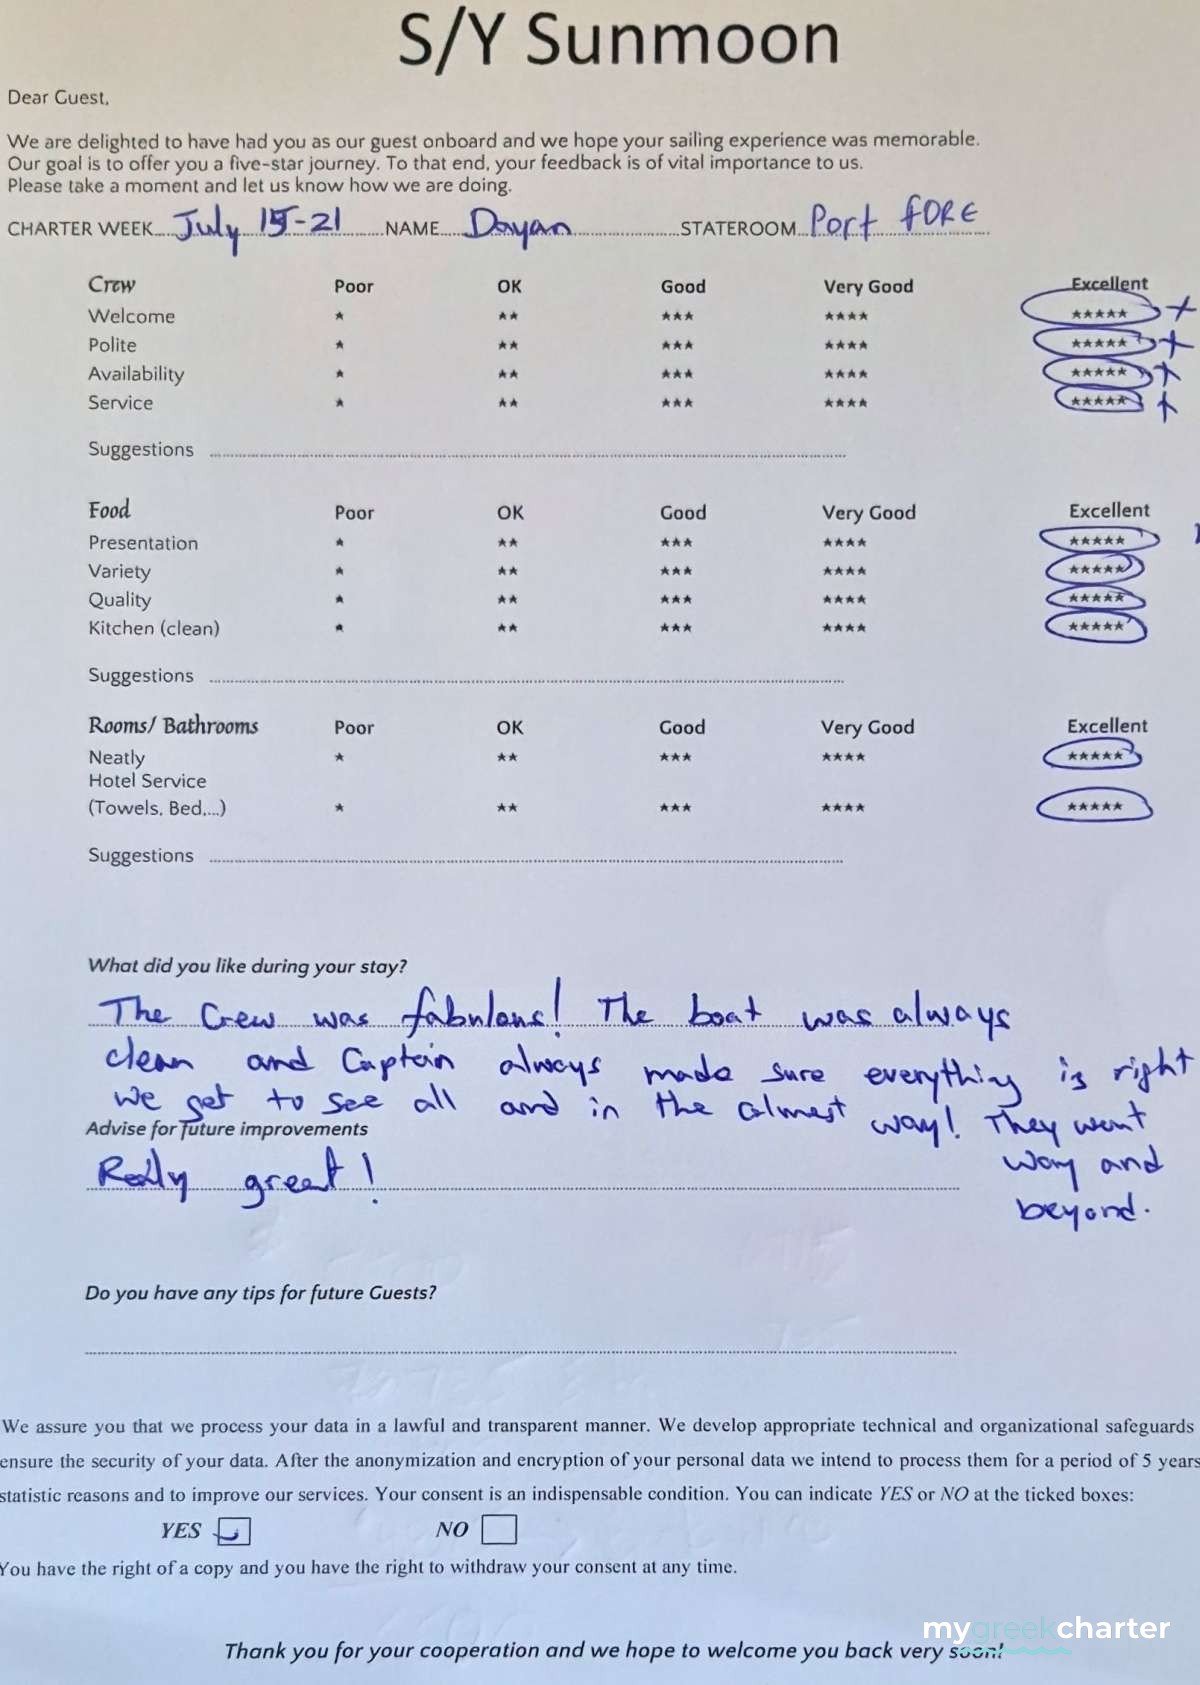 S/Y Sunmoon
Dear Guest,
We are delighted to have had you as our guest onboard and we hope your sailing experience was memorable.
Our goal is to offer you a five-star journey. To that end, your feedback is of vital importance to us.
Please take a moment and let us know how we are doing.
CHARTER WEEK July 15-21 NAME Dayan STATEROOM Port FORE
Crew Poor OK Good Very Good Excellent
Welcome ★ ★★ ★★★ ★★★★ ★★★★★
Polite ★ ★★ ★★★ ★★★★ ★★★★★
Availability ★ ★★ ★★★ ★★★★ ★★★★★
Service ★ ★★ ★★★ ★★★★ ★★★★★
Suggestions
Food Poor OK Good Very Good Excellent
Presentation ★ ★★ ★★★ ★★★★ ★★★★★
Variety ★ ★★ ★★★ ★★★★ ★★★★★
Quality ★ ★★ ★★★ ★★★★ ★★★★★
Kitchen (clean) ★ ★★ ★★★ ★★★★ ★★★★★
Suggestions
Rooms/ Bathrooms Poor OK Good Very Good Excellent
Neatly ★ ★★ ★★★ ★★★★ ★★★★★
Hotel Service
(Towels, Bed,...) ★ ★★ ★★★ ★★★★ ★★★★★
Suggestions
What did you like during your stay?
The Crew was fabulous! The boat was always
clean and Captain always made sure everything is right
we get to see all and in the calmest way! They went
way and
beyond.
Advise for future improvements
Really great!
Do you have any tips for future Guests?
We assure you that we process your data in a lawful and transparent manner. We develop appropriate technical and organizational safeguards
ensure the security of your data. After the anonymization and encryption of your personal data we intend to process them for a period of 5 years
statistic reasons and to improve our services. Your consent is an indispensable condition. You can indicate YES or NO at the ticked boxes:
YES NO
You have the right of a copy and you have the right to withdraw your consent at any time.
mygreekcharter
Thank you for your cooperation and we hope to welcome you back very soon!